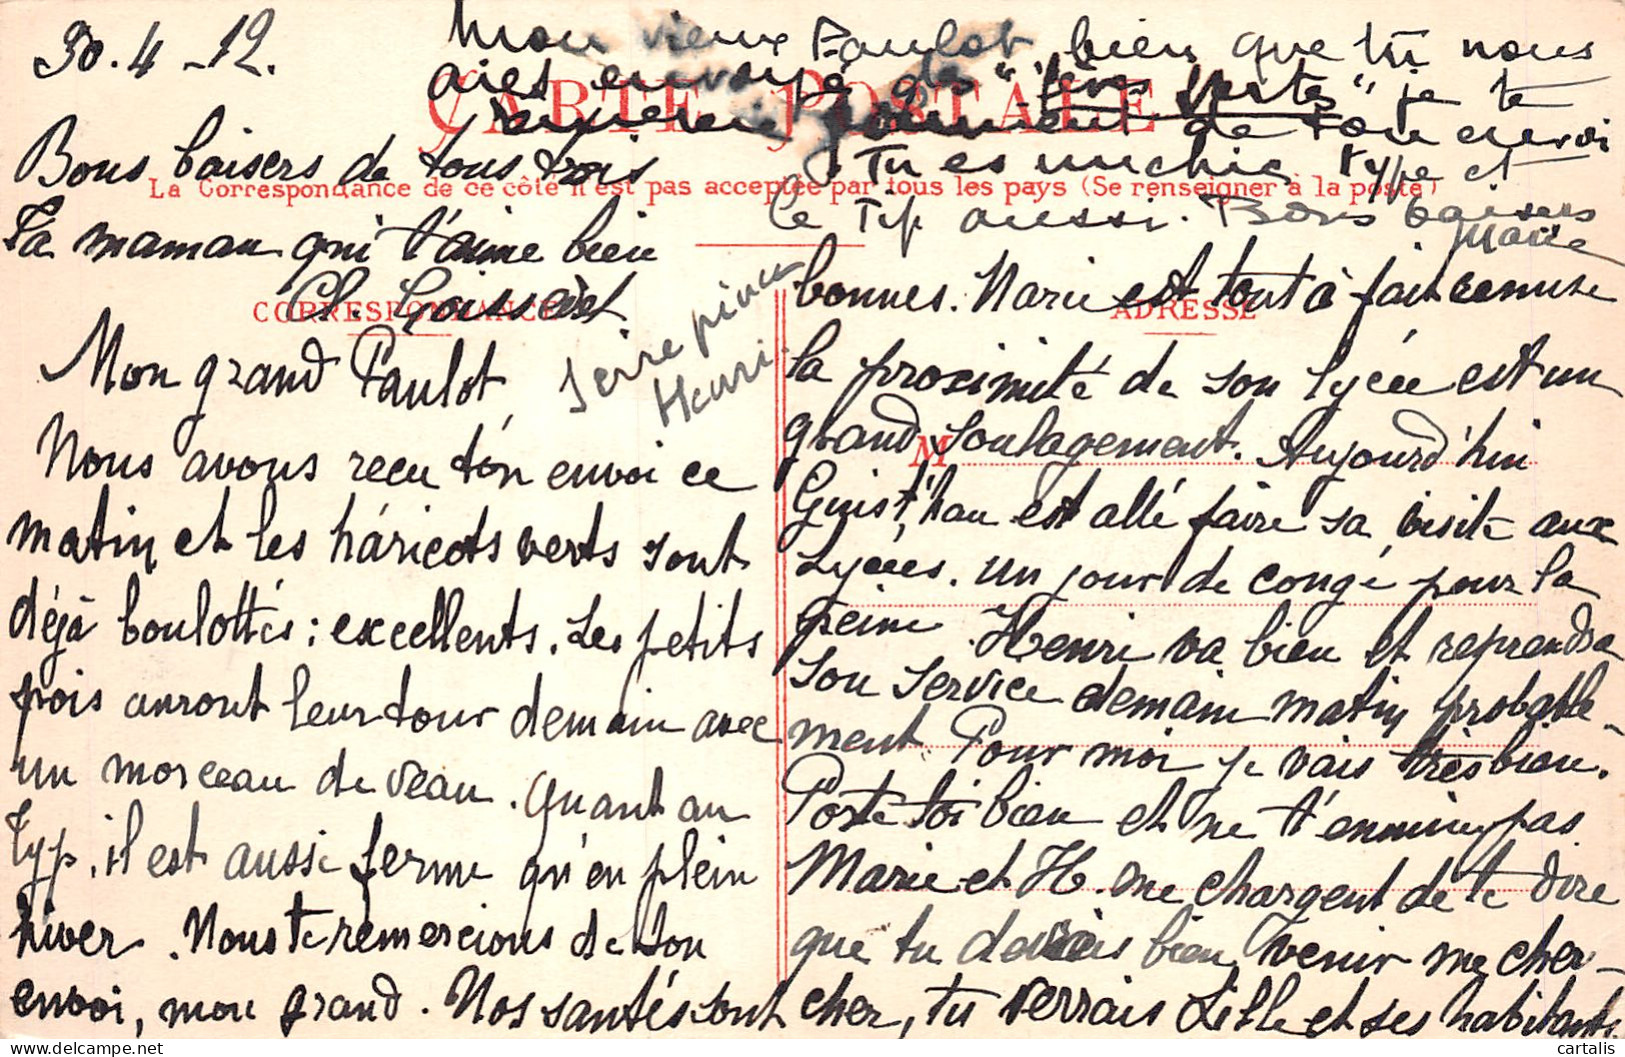 30.4-12.
Mon vieux Paulot, bien que tu nous
aies envoyé des "            vertes" je te
               de ton envoi
Tu es un chic type et
le Typ aussi. Bons baisers
Marie
CARTE POSTALE
La Correspondance de ce côté n'est pas acceptée par tous les pays (Se renseigner à la poste)
CORRESPONDANCE
ADRESSE
M
Bons baisers de tous trois
Ta maman qui t'aime bien
Ch.
Serre pince
Henri.
Mon grand Paulot,
Nous avons reçu ton envoi ce
matin et les haricots verts sont
déjà boulottés : excellents. Les petits
pois auront leur tour demain avec
un morceau de veau. Quant au
Typ, il est aussi ferme qu'en plein
hiver. Nous te remercions de ton
envoi, mon grand. Nos santés sont
bonnes. Marie est tout à fait remise
la proximité de son lycée est un
grand soulagement. Aujourd'hui
Guist'hau est allé faire sa visite aux
Lycées. Un jour de congé pour la
peine. Henri va bien et reprendra
son service demain matin probable-
ment. Pour moi je vais très bien.
Porte toi bien et ne t'ennuie pas
Marie et H. me chargent de te dire
que tu devrais bien venir me cher-
cher, tu verrais Lille et ses habitants.
cartalis